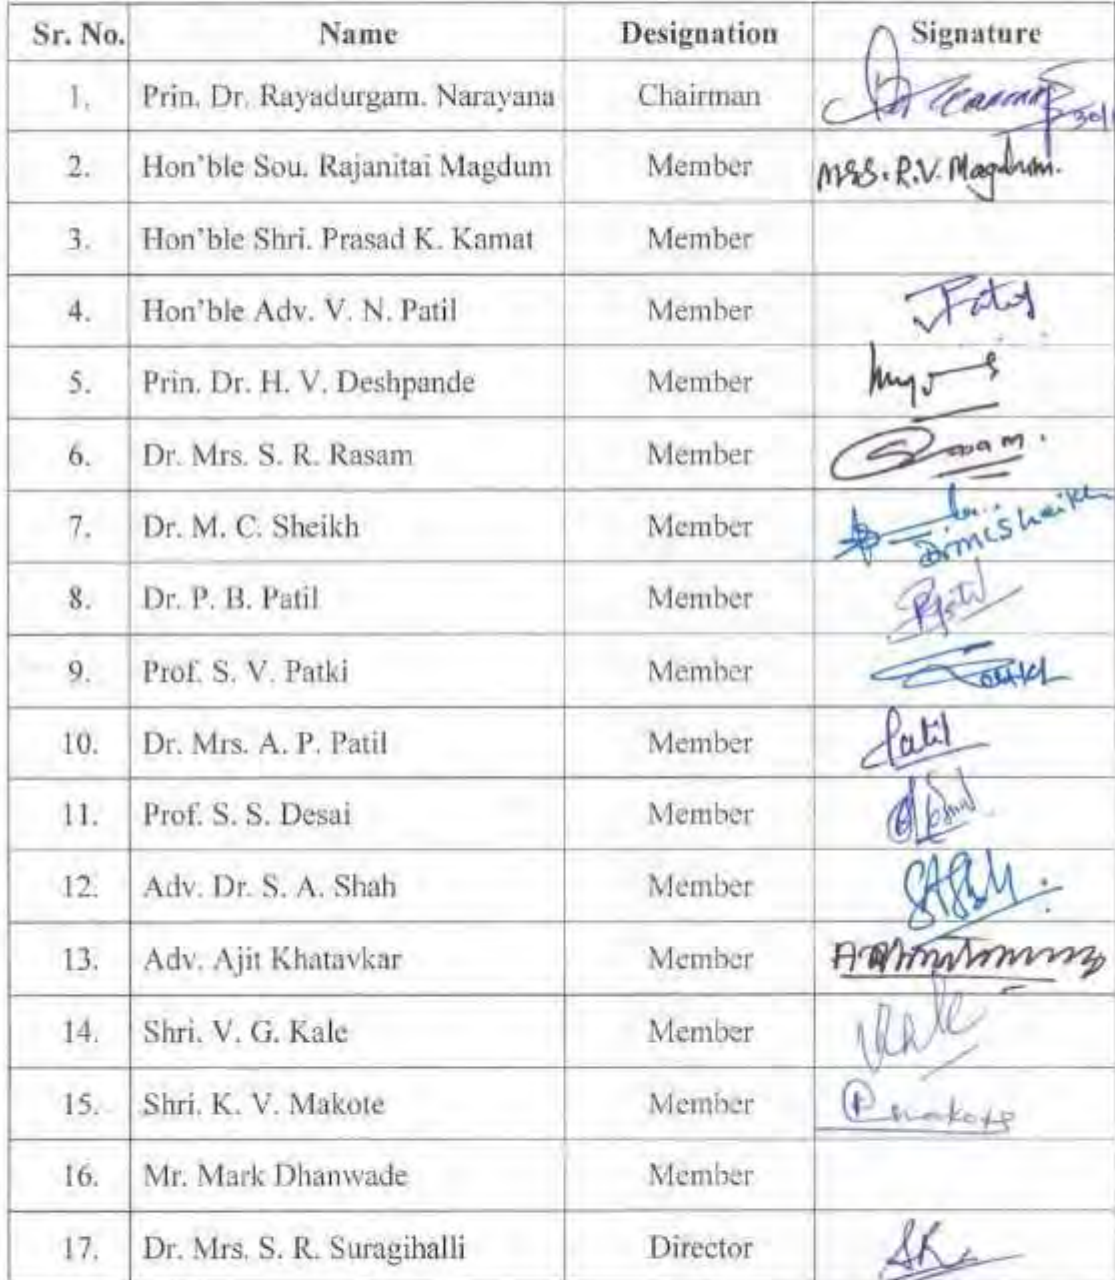 Sr. No. Name Designation Signature
1. Prin. Dr. Rayadurgam. Narayana Chairman
2. Hon'ble Sou. Rajanitai Magdum Member Mrs. R.V. Magdum.
3. Hon'ble Shri. Prasad K. Kamat Member
4. Hon'ble Adv. V. N. Patil Member
5. Prin. Dr. H. V. Deshpande Member
6. Dr. Mrs. S. R. Rasam Member
7. Dr. M. C. Sheikh Member
8. Dr. P. B. Patil Member
9. Prof. S. V. Patki Member
10. Dr. Mrs. A. P. Patil Member Patil
11. Prof. S. S. Desai Member
12. Adv. Dr. S. A. Shah Member
13. Adv. Ajit Khatavkar Member
14. Shri. V. G. Kale Member
15. Shri. K. V. Makote Member makote
16. Mr. Mark Dhanwade Member
17. Dr. Mrs. S. R. Suragihalli Director